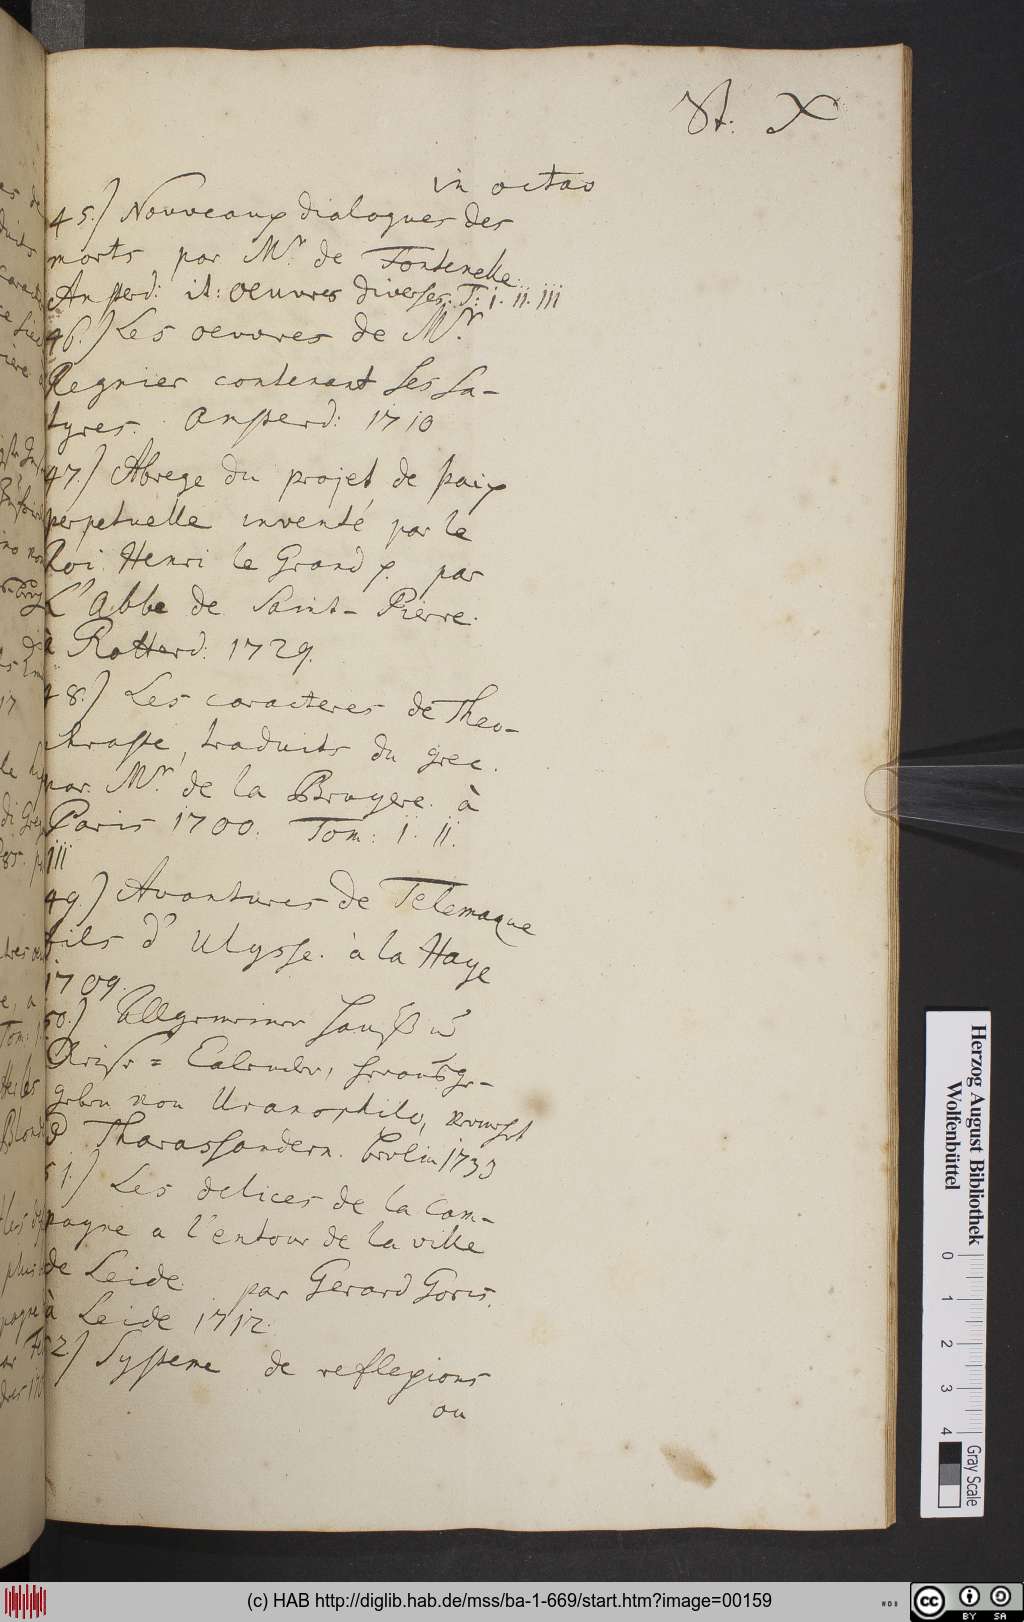 St. X
in octav
45.) Nouveaux dialogues des
morts par Mr. de Fontenelle.
Amsterd: it: oeuvres diverses. T: i. ii. iii
46.) Les oeuvres de Mr.
Regnier contenant ses sa-
tyres. Amsterd: 1710
47.) Abrege du projet de paix
perpetuelle inventé par le
Roi Henri le Grand p. par
L'Abbe de Saint-Pierre.
à Rotterd: 1729.
48.) Les caracteres de Theo-
phraste, traduits du grec.
par Mr. de la Bruyere. à
Paris 1700. Tom: i. ii.
iii
49.) Avantures de Telemaque
fils d'Ulysse. à la Haye
1709.
50.) Allgemeiner Hauß u
Reise = Calender, heraußge-
geben von Uranophilo,
Tharassandern. Berlin 1733
51.) Les delices de la cam-
pagne a l'entour de la ville
de Leide. par Gerard Goris.
à Leide 1712.
52) Systeme de reflexions
ou
Herzog August Bibliothek
Wolfenbüttel
0 1 2 3 4
Gray Scale
(c) HAB http://diglib.hab.de/mss/ba-1-669/start.htm?image=00159
cc BY SA